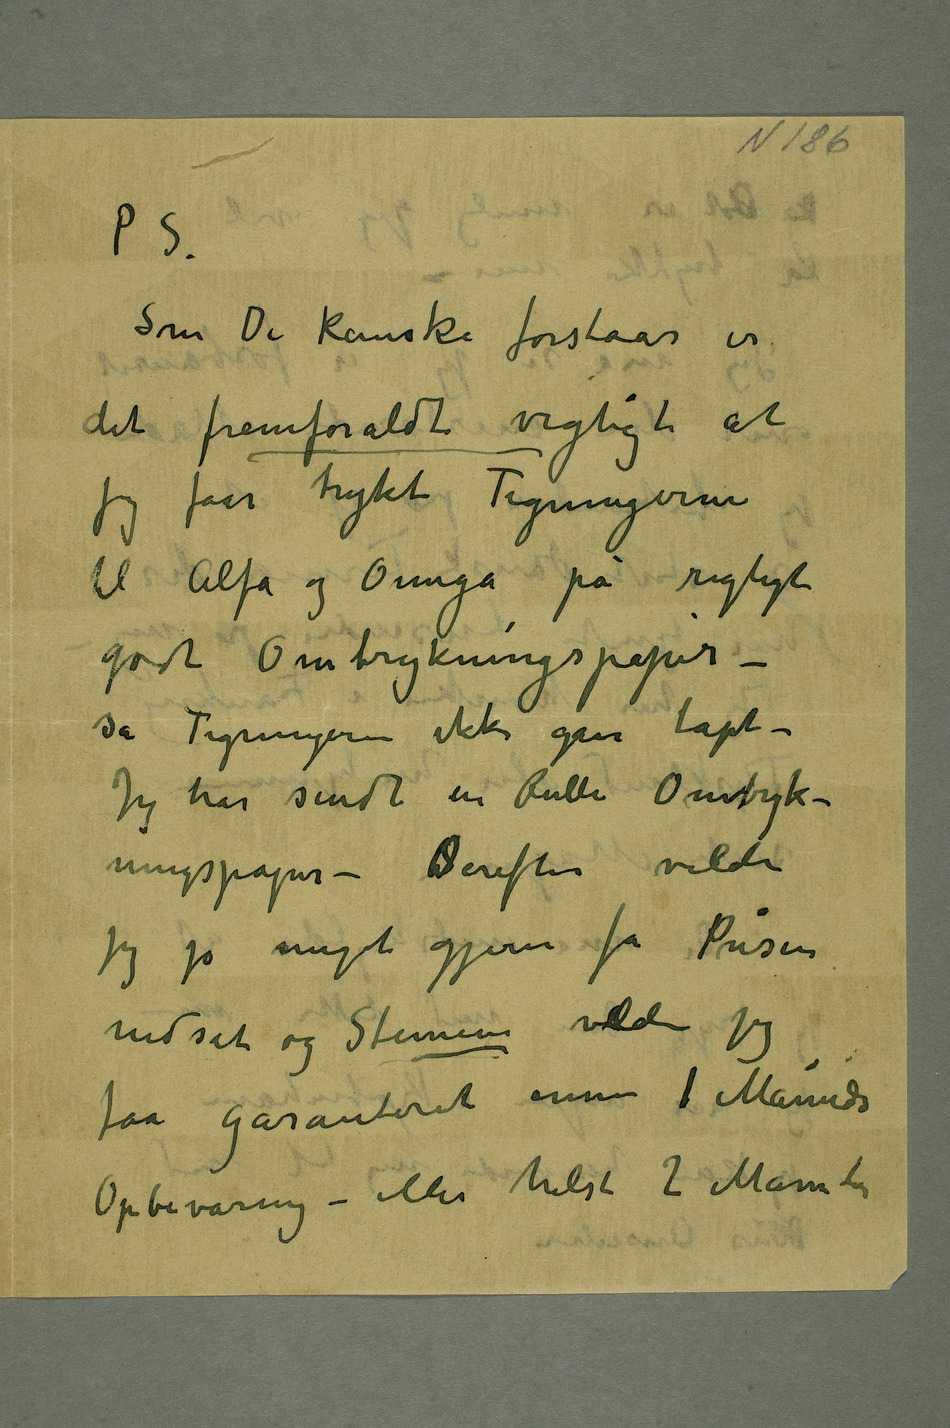 N 186
P S.
Som De kanske forstaar er
det fremforaldt vigtigt at
jeg faar trykt Tegningerne
til Alfa og Omega på rigtigt
godt Omtrykningspapir –
så Tegningerne ikke gaar tapt –
Jeg har sendt en Rulle Omtryk-
ningspapir – Derefter vilde
jeg jo meget gjerne få Prisen
nedsat og Stenene vilde jeg
faa garanteret en 1 Måneds
Opbevaring – eller helst 2 Måneder